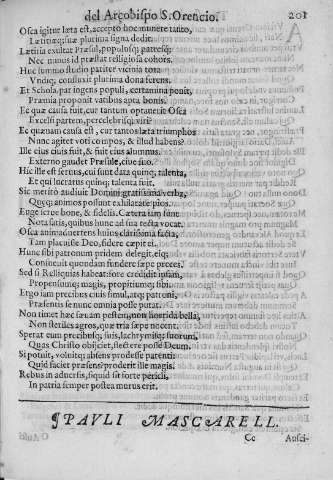 del Arçobispo S. Orencio. 201
Osca igitur læta est, accepto hoc munere tanto,
Lætitiæq; suæ plurima signa dedit.
Lætitia exultat Præsul, populusq; patresq;
Nec minus id præstat relligiosa cohors.
Huc summo studio pariter vicinia tota
Vndiq; confluxit plurima dona ferens.
Et Schola par ingens populi, certamina ponit,
Præmia proponit vatibus apta bonis.
Ec quæ causa fuit, cur tantum optauerit Osca
Excelsi partem, percelebrisq; viri?
Ec quænam causa est, cur tantos læta triumphos
Nunc agitet voti compos, & illud habens?
Ille eius ciuis fuit, & fuit eius alumnus.
Externo gaudet Præsule, ciue suo.
Hic ille est seruus, cui sunt data quinq; talenta,
Et qui lucratus quinq; talenta fuit.
Sic merito audiuit Domini gratissima verba,
Quæq; animos possunt exhilarare pios.
Euge serue bone, & fidelis. Cætera iam sunt
Nota satis, quibus hunc ad sua tecta vocat.
Osca animaduertens huius clarissima facta,
Tam placuisse Deo, sidere cæpit ei.
Hunc sibi patronum pridem delegit. eiq;
Consueuit quondam fundere sæpe preces.
Sed si Relliquias habeat: fore credidit ipsam,
Propensumq; magis, propitiumq; sibi.
Ergo iam precibus cuius simul, atq; patroni,
Præsentis se nunc omnia posse putat.
Non timet hæc sæuam pestem, non horrida bella,
Non steriles agros, quæ tria sæpe nocent.
Sperat eum precibusq; suis, lachrymisq; suorum,
Quas Christo obijciet, flectere posse Deum.
Si potuit, voluitq; absens prodesse parenti:
Quid faciet præsens? proderit ille magis.
Rebus in aduersis, siquid sit forte pericli,
In patria semper postea murus erit.
¶PAVLI MASCARELL.
Cc Ausci-